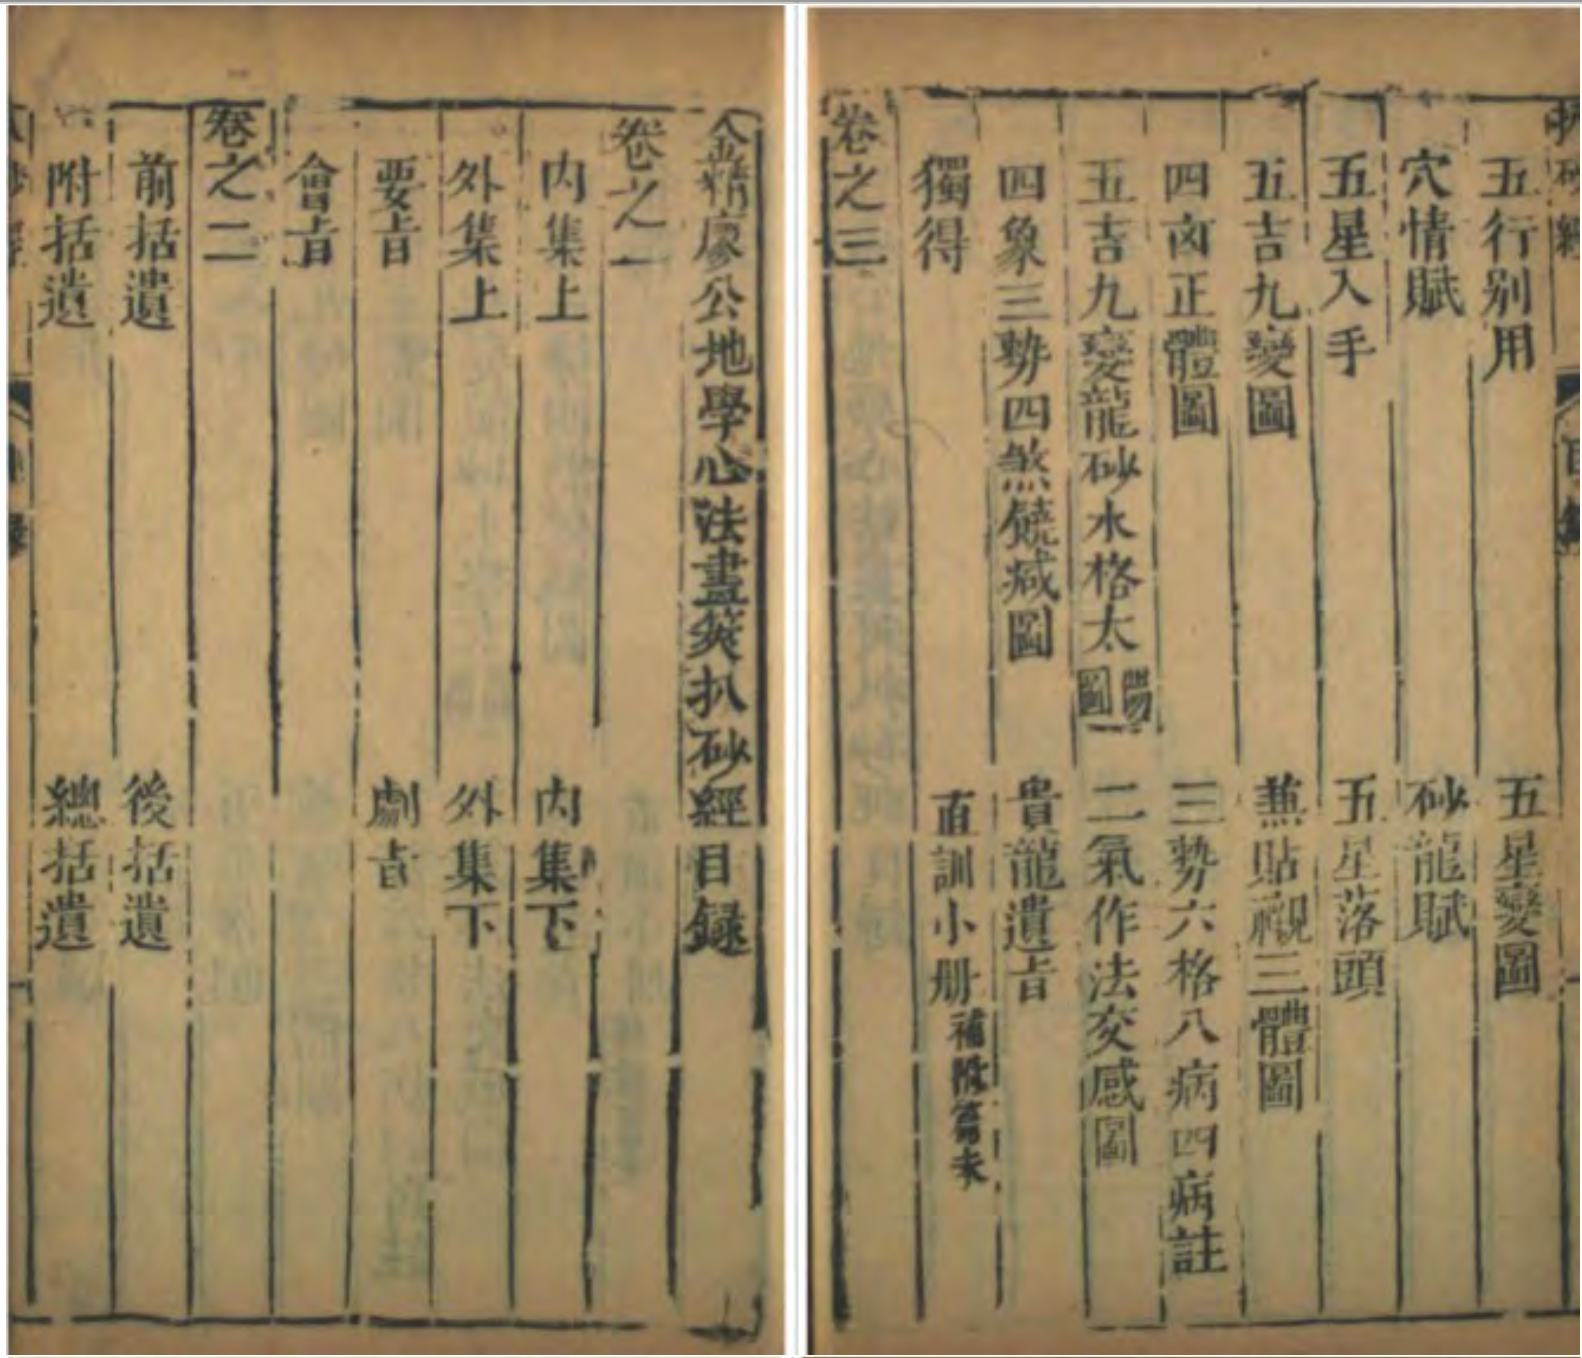 金精廖公地學心法畫筴扒砂經目録
卷之一
内集上 内集下
外集上 外集下
要㫖 劇㫖
會㫖
卷之二
前括遺 後括遺
附括遺 總括遺
五行别用 五星變圖
穴情賦 砂龍賦
五星入手 五星落頭
五吉九變圖 兼貼襯三體圖
四凶正體圖 三勢六格八病四病註
五吉九變龍砂水格太陽圖 二氣作法交感圖
四象三勢四煞饒减圖 貴龍遺㫖
獨得 直訓小册補附篇末
卷之三